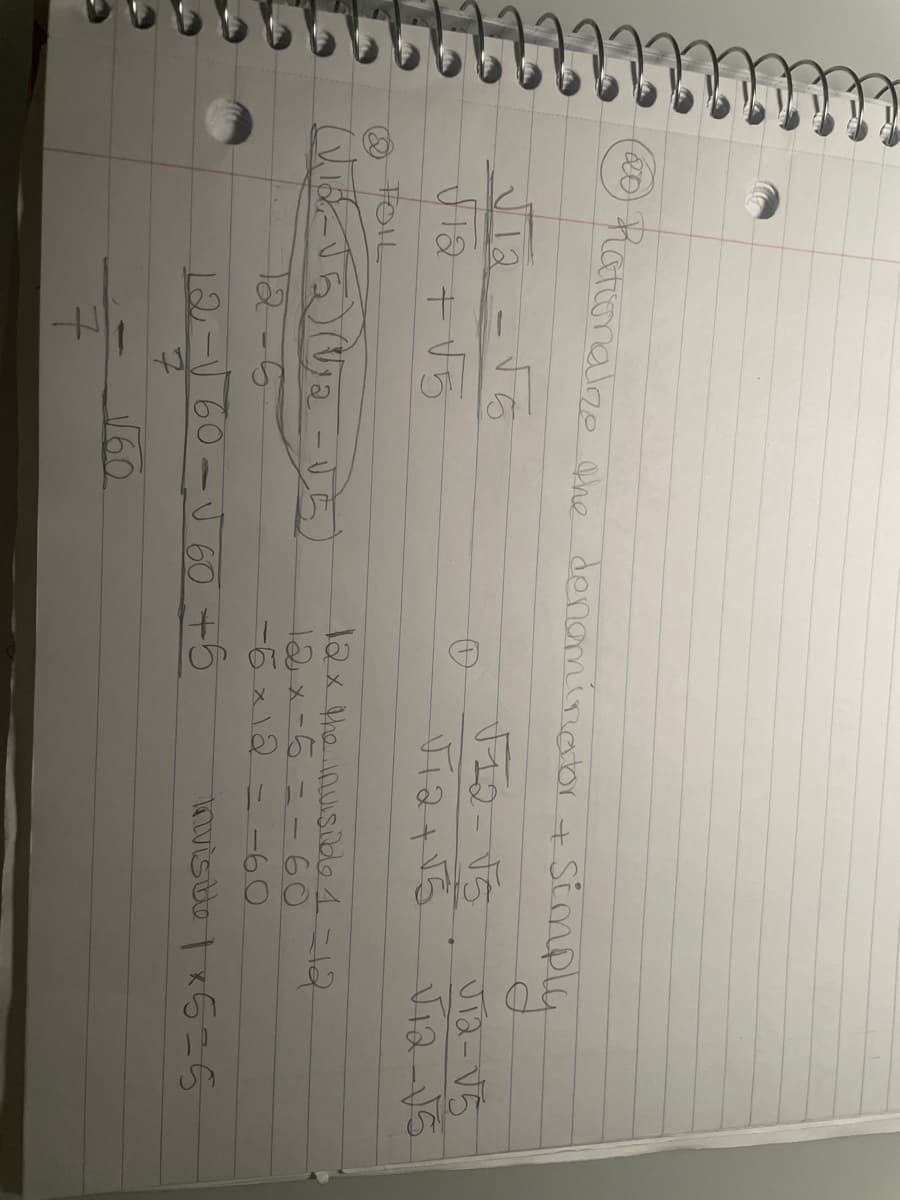 20 Rationalize the denominator + Simply
√12 - √5
√12 + √5
① √12 - √5 · √12 - √5
√12 + √5 √12 - √5
② FOIL
(√12 - √5)(√12 - √5)
12 - 5
12 x the invisible 1 = 12
12 x -5 = -60
-5 x 12 = -60
12 - √60 - √60 + 5
7
invisible 1 x 5 = 5
- √60
7